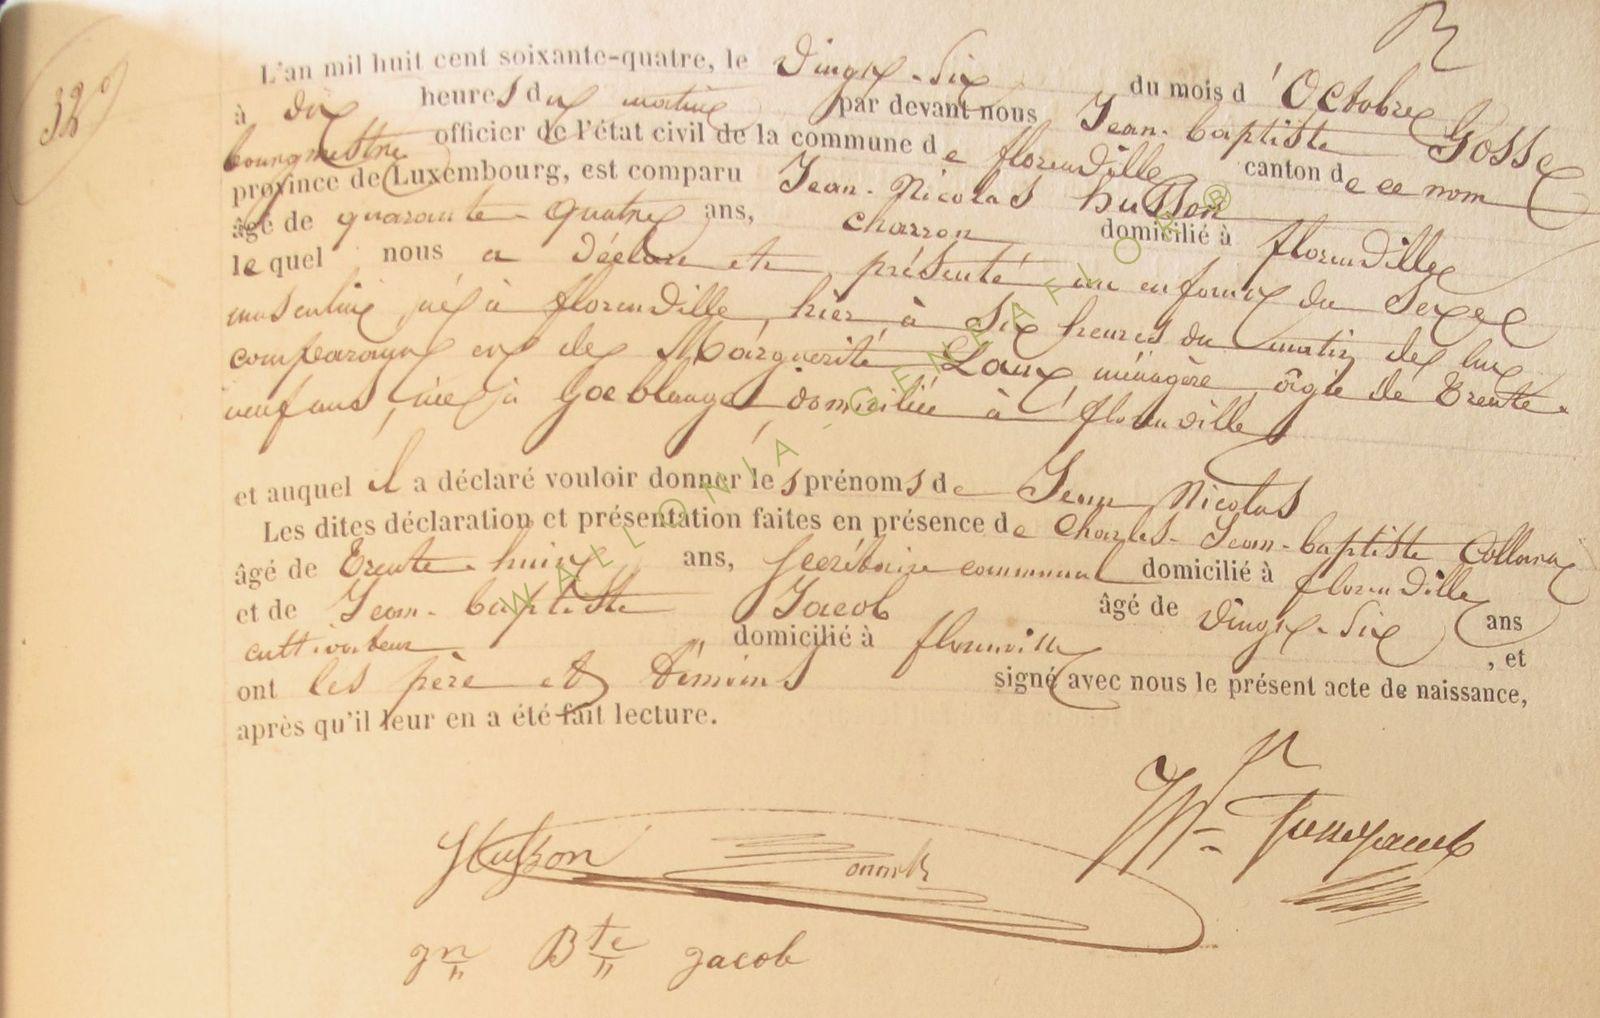 32
L'an mil huit cent soixante-quatre, le vingt-six du mois d'Octobre
à dix heures du matin par devant nous Jean-baptiste Gosse
bourgmestre officier de l'état civil de la commune de florenville canton de ce nom
province de Luxembourg, est comparu Jean-Nicolas husson
âgé de quarante-quatre ans, charron domicilié à florenville
lequel nous a déclaré et présenté un enfant du sexe
masculin, né à florenville, hier, à six heures du matin de lui
comparant et de Marguerite Laux, ménagère, âgée de trente-
neuf ans, née à Goeblange, domiciliée à florenville
et auquel il a déclaré vouloir donner les prénoms de Jean Nicolas
Les dites déclaration et présentation faites en présence de Charles-Jean-baptiste
âgé de trente-huit ans, secrétaire communal domicilié à florenville
et de Jean-baptiste Jacob âgé de vingt-six ans
cultivateur domicilié à florenville, et
ont les père et témoins signé avec nous le présent acte de naissance,
après qu'il leur en a été fait lecture.
Husson
Jn Bte Jacob
WALLONIA-GENEAFLOR®